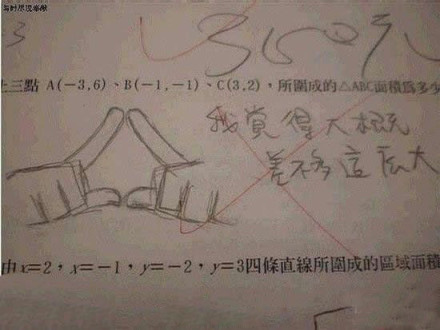 -3
350元
上三點 A(-3,6)、B(-1,-1)、C(3,2),所圍成的△ABC面積為多少
我覺得大概
差不多這麼大
由x=2,x=-1,y=-2,y=3四條直線所圍成的區域面積